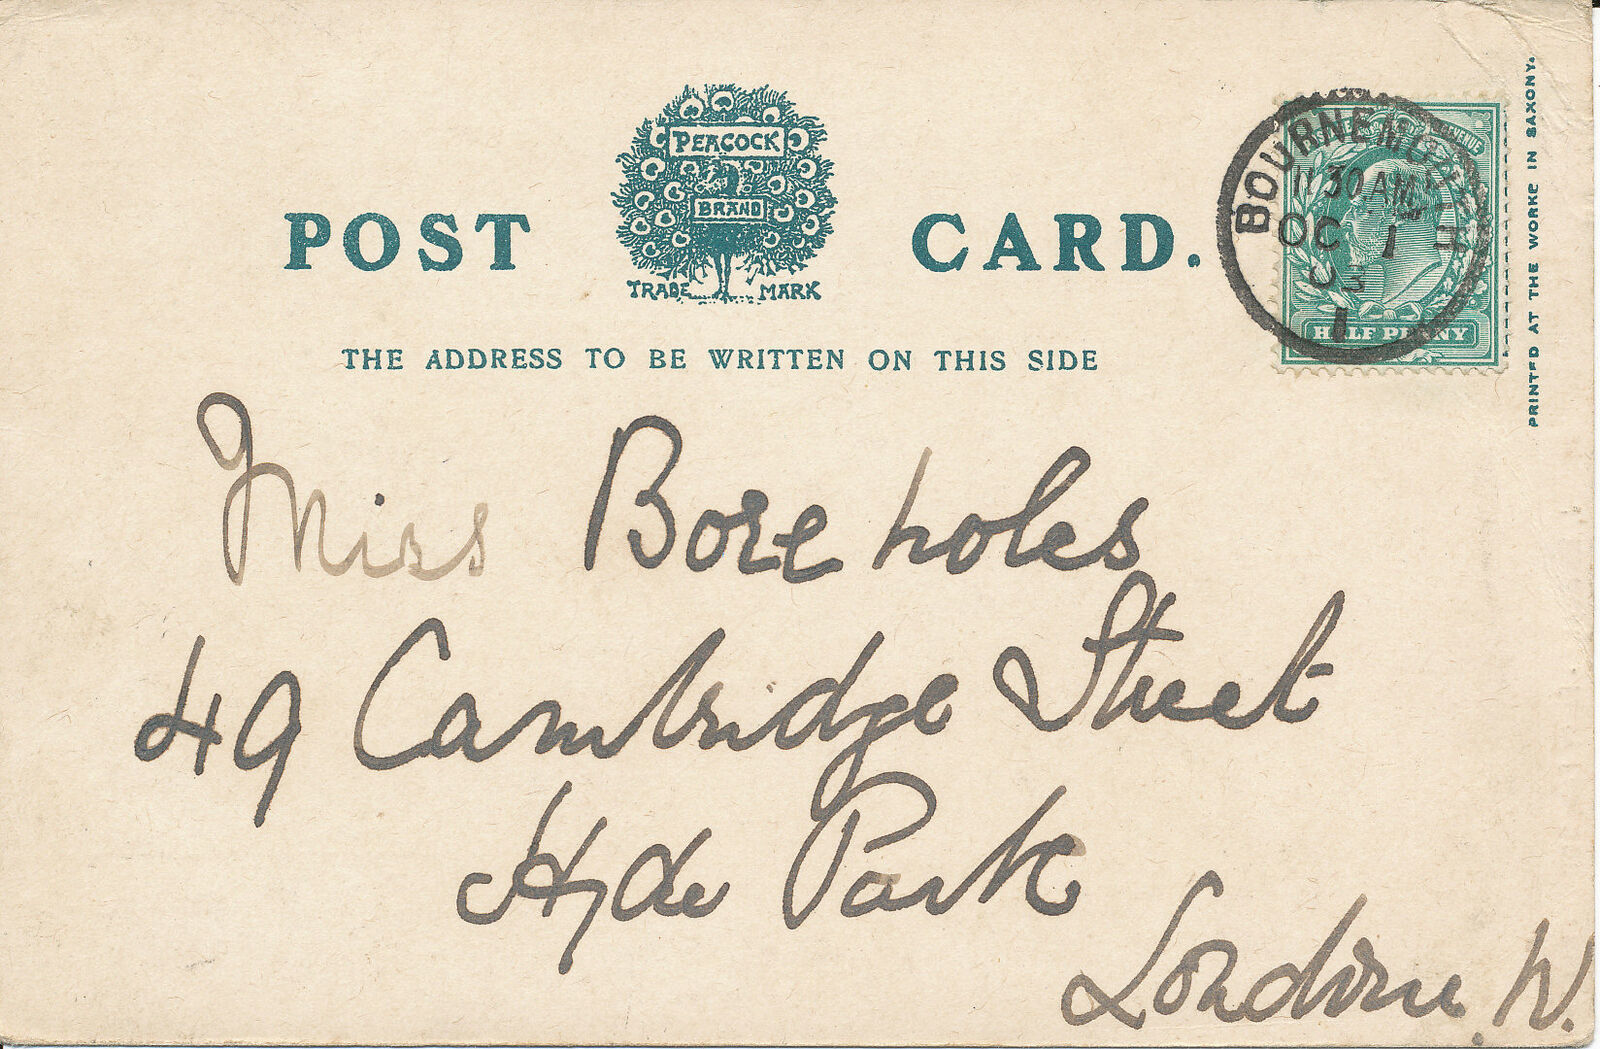 POST CARD.
PEACOCK
BRAND
TRADE MARK
THE ADDRESS TO BE WRITTEN ON THIS SIDE
BOURNEMOUTH
11.30 AM
OC 1
03
1
HALF PENNY
PRINTED AT THE WORKS IN SAXONY.
Miss Boreholes
49 Cambridge Street
Hyde Park
London. W.